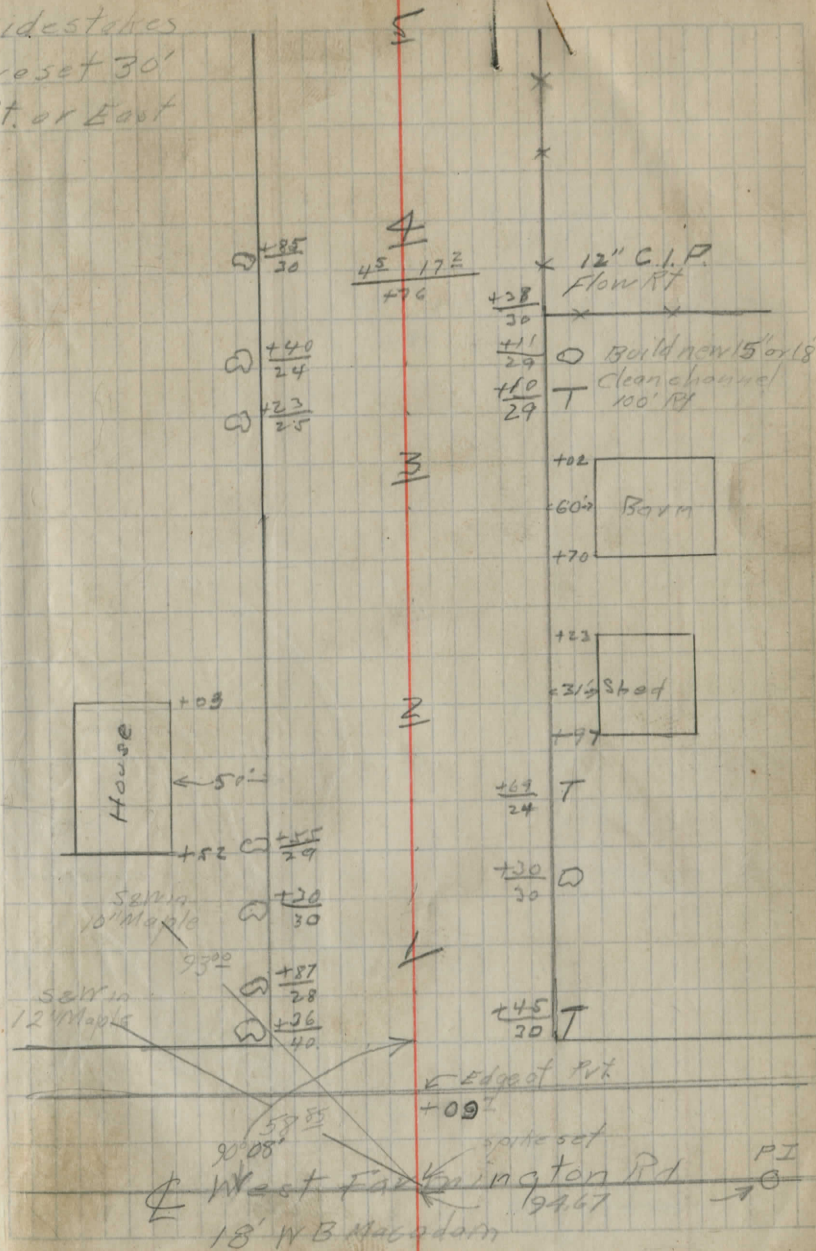 idestakes
eset 30'
t. or East
5
4
+85
30
4⁵ 17²
+76
12" C.I.P.
Flow Rt
+38
30
+40
24
+11
29
Build new 15" or 18"
Clean channel
100' Rt
+10
29
T
+23
25
3
+02
60'
Barn
+70
+23
31'
Shed
+97
2
+03
House
50'
+52
+69
24
T
+55
29
+30
30
S&W in
10" Maple
+20
30
93⁰⁰
1
+87
28
S&W in
12" Maple
+36
40
+45
30
T
Edge of Pvt.
+09
58⁸⁵
90°08'
spike set
PI
℄ West Farmington Rd
94.67
18' W B Macadam